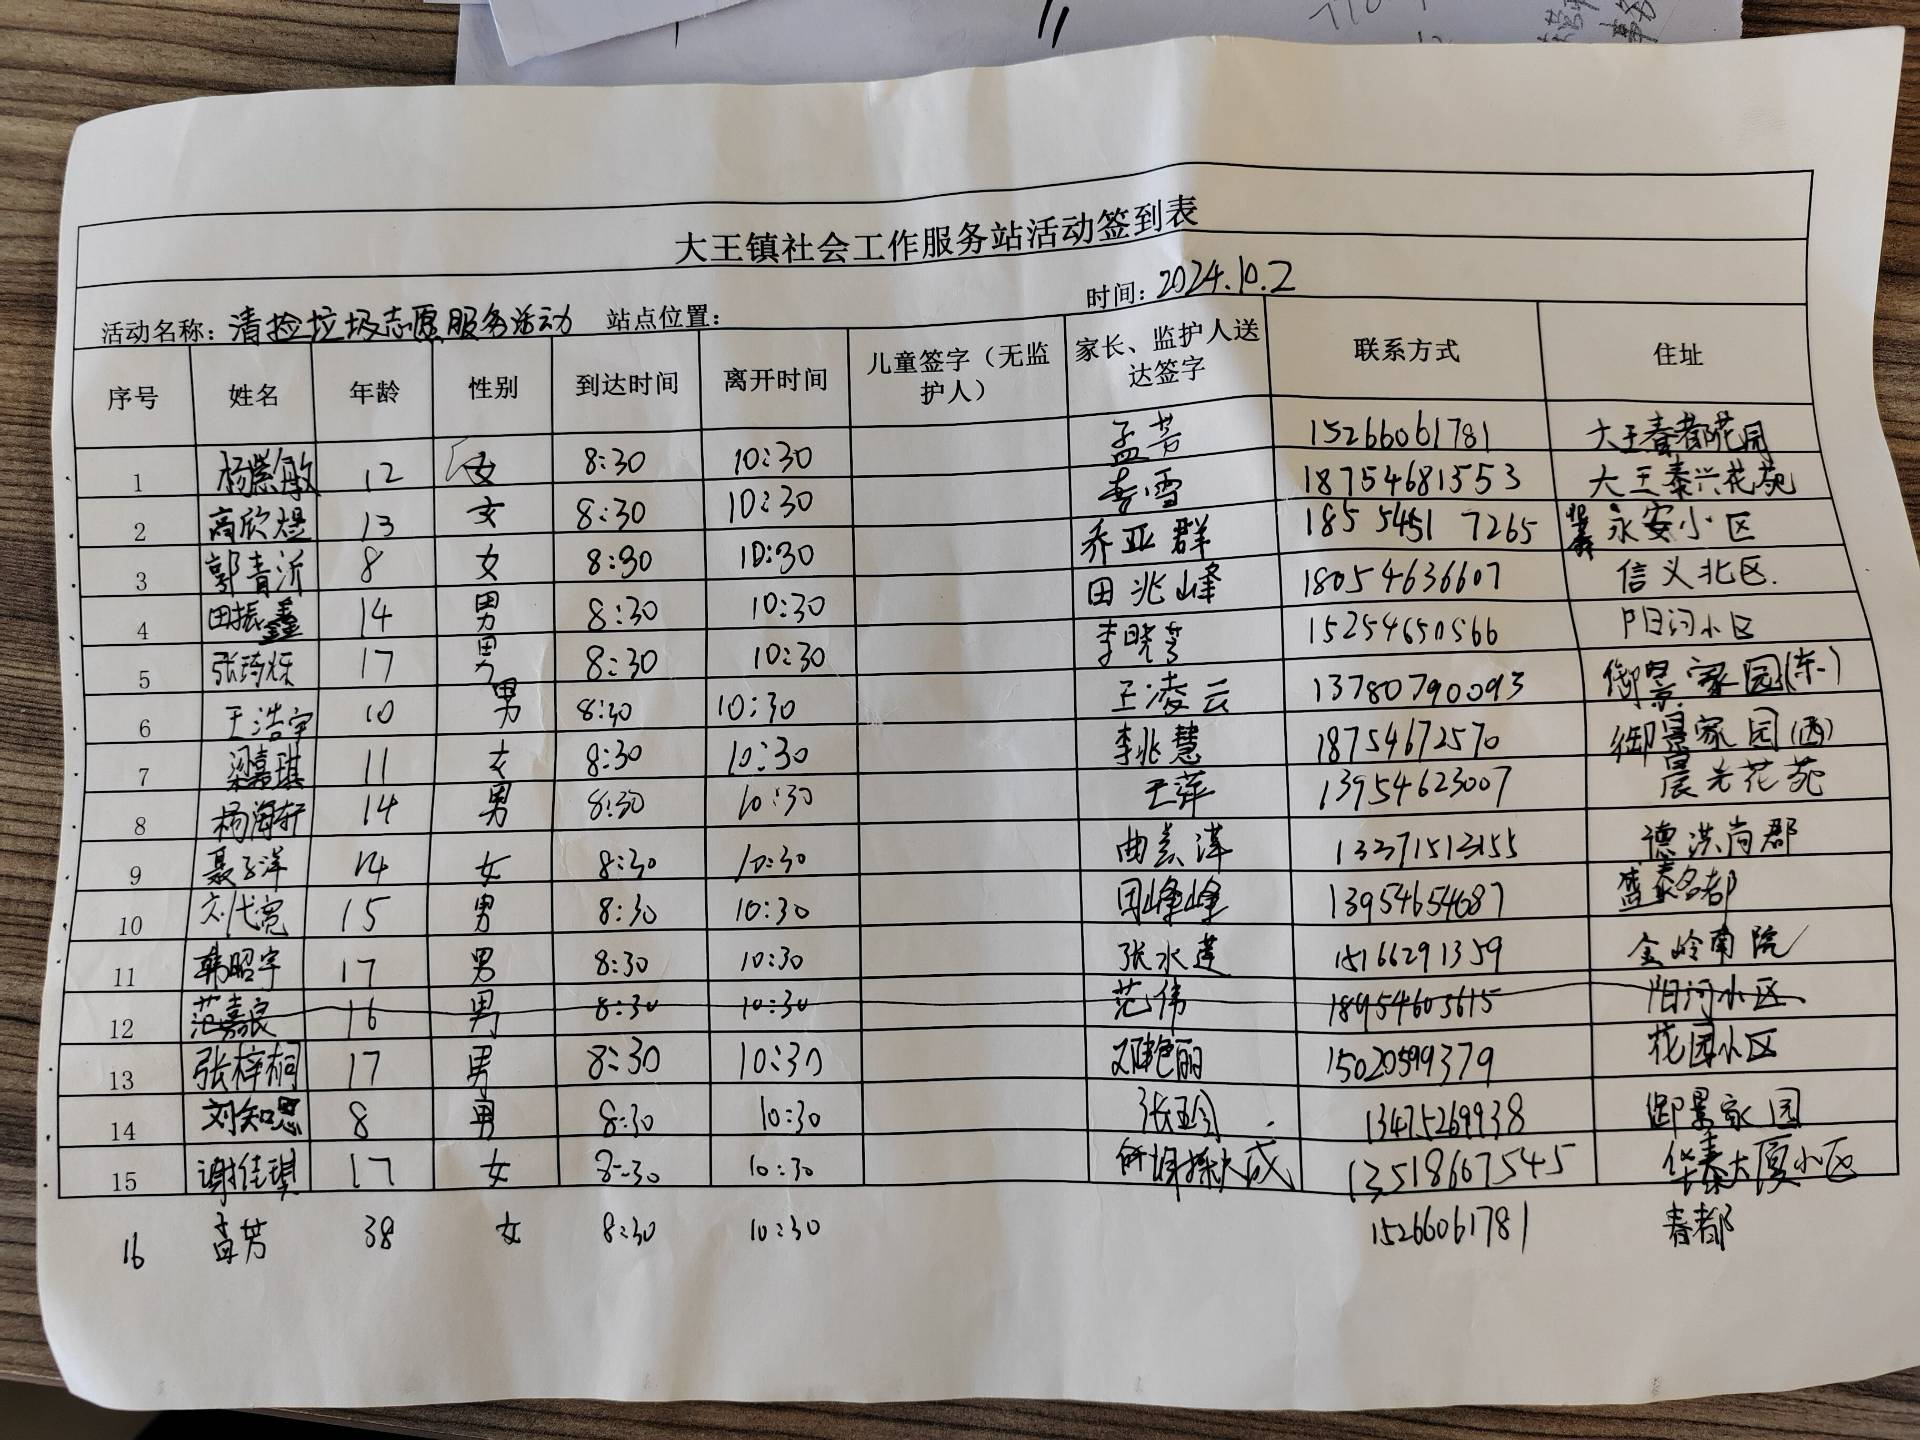 大王镇社会工作服务站活动签到表
活动名称：清捡垃圾志愿服务活动 站点位置： 时间：2024.10.2
序号 姓名 年龄 性别 到达时间 离开时间 儿童签字（无监护人） 家长、监护人送达签字 联系方式 住址
1 杨紫敏 12 女 8:30 10:30 孟芳 15266061781 大王春都花园
2 高欣煜 13 女 8:30 10:30 李雪 18754681553 大王泰兴花苑
3 郭青沂 8 女 8:30 10:30 乔亚群 18554517265 永安小区
4 田振鑫 14 男 8:30 10:30 田兆峰 18054636607 信义北区.
5 张琦烁 17 男 8:30 10:30 李晓 15254650566 阳河小区
6 王浩宇 10 男 8:30 10:30 王凌云 13780790093 御景家园(东)
7 梁嘉琪 11 女 8:30 10:30 李兆慧 18754672570 御景家园(西)
8 杨海轩 14 男 8:30 10:30 王萍 13954623007 晨光花苑
9 聂子洋 14 女 8:30 10:30 曲美泽 德洪尚郡
10 刘代宽 15 男 8:30 10:30 周峰峰 13954654687 盛泰名都
11 韩昭宇 17 男 8:30 10:30 张水莲 15166291359 金岭南院
12 范嘉良 16 男 8:30 10:30 范伟 18954605615 阳河小区
13 张梓桐 17 男 8:30 10:30 艳丽 15020599379 花园小区
14 刘知恩 8 男 8:30 10:30 张 13475269938 御景家园
15 谢佳琪 17 女 8:30 10:30 13518667545 华泰大厦小区
16 孟芳 38 女 8:30 10:30 15266061781 春都